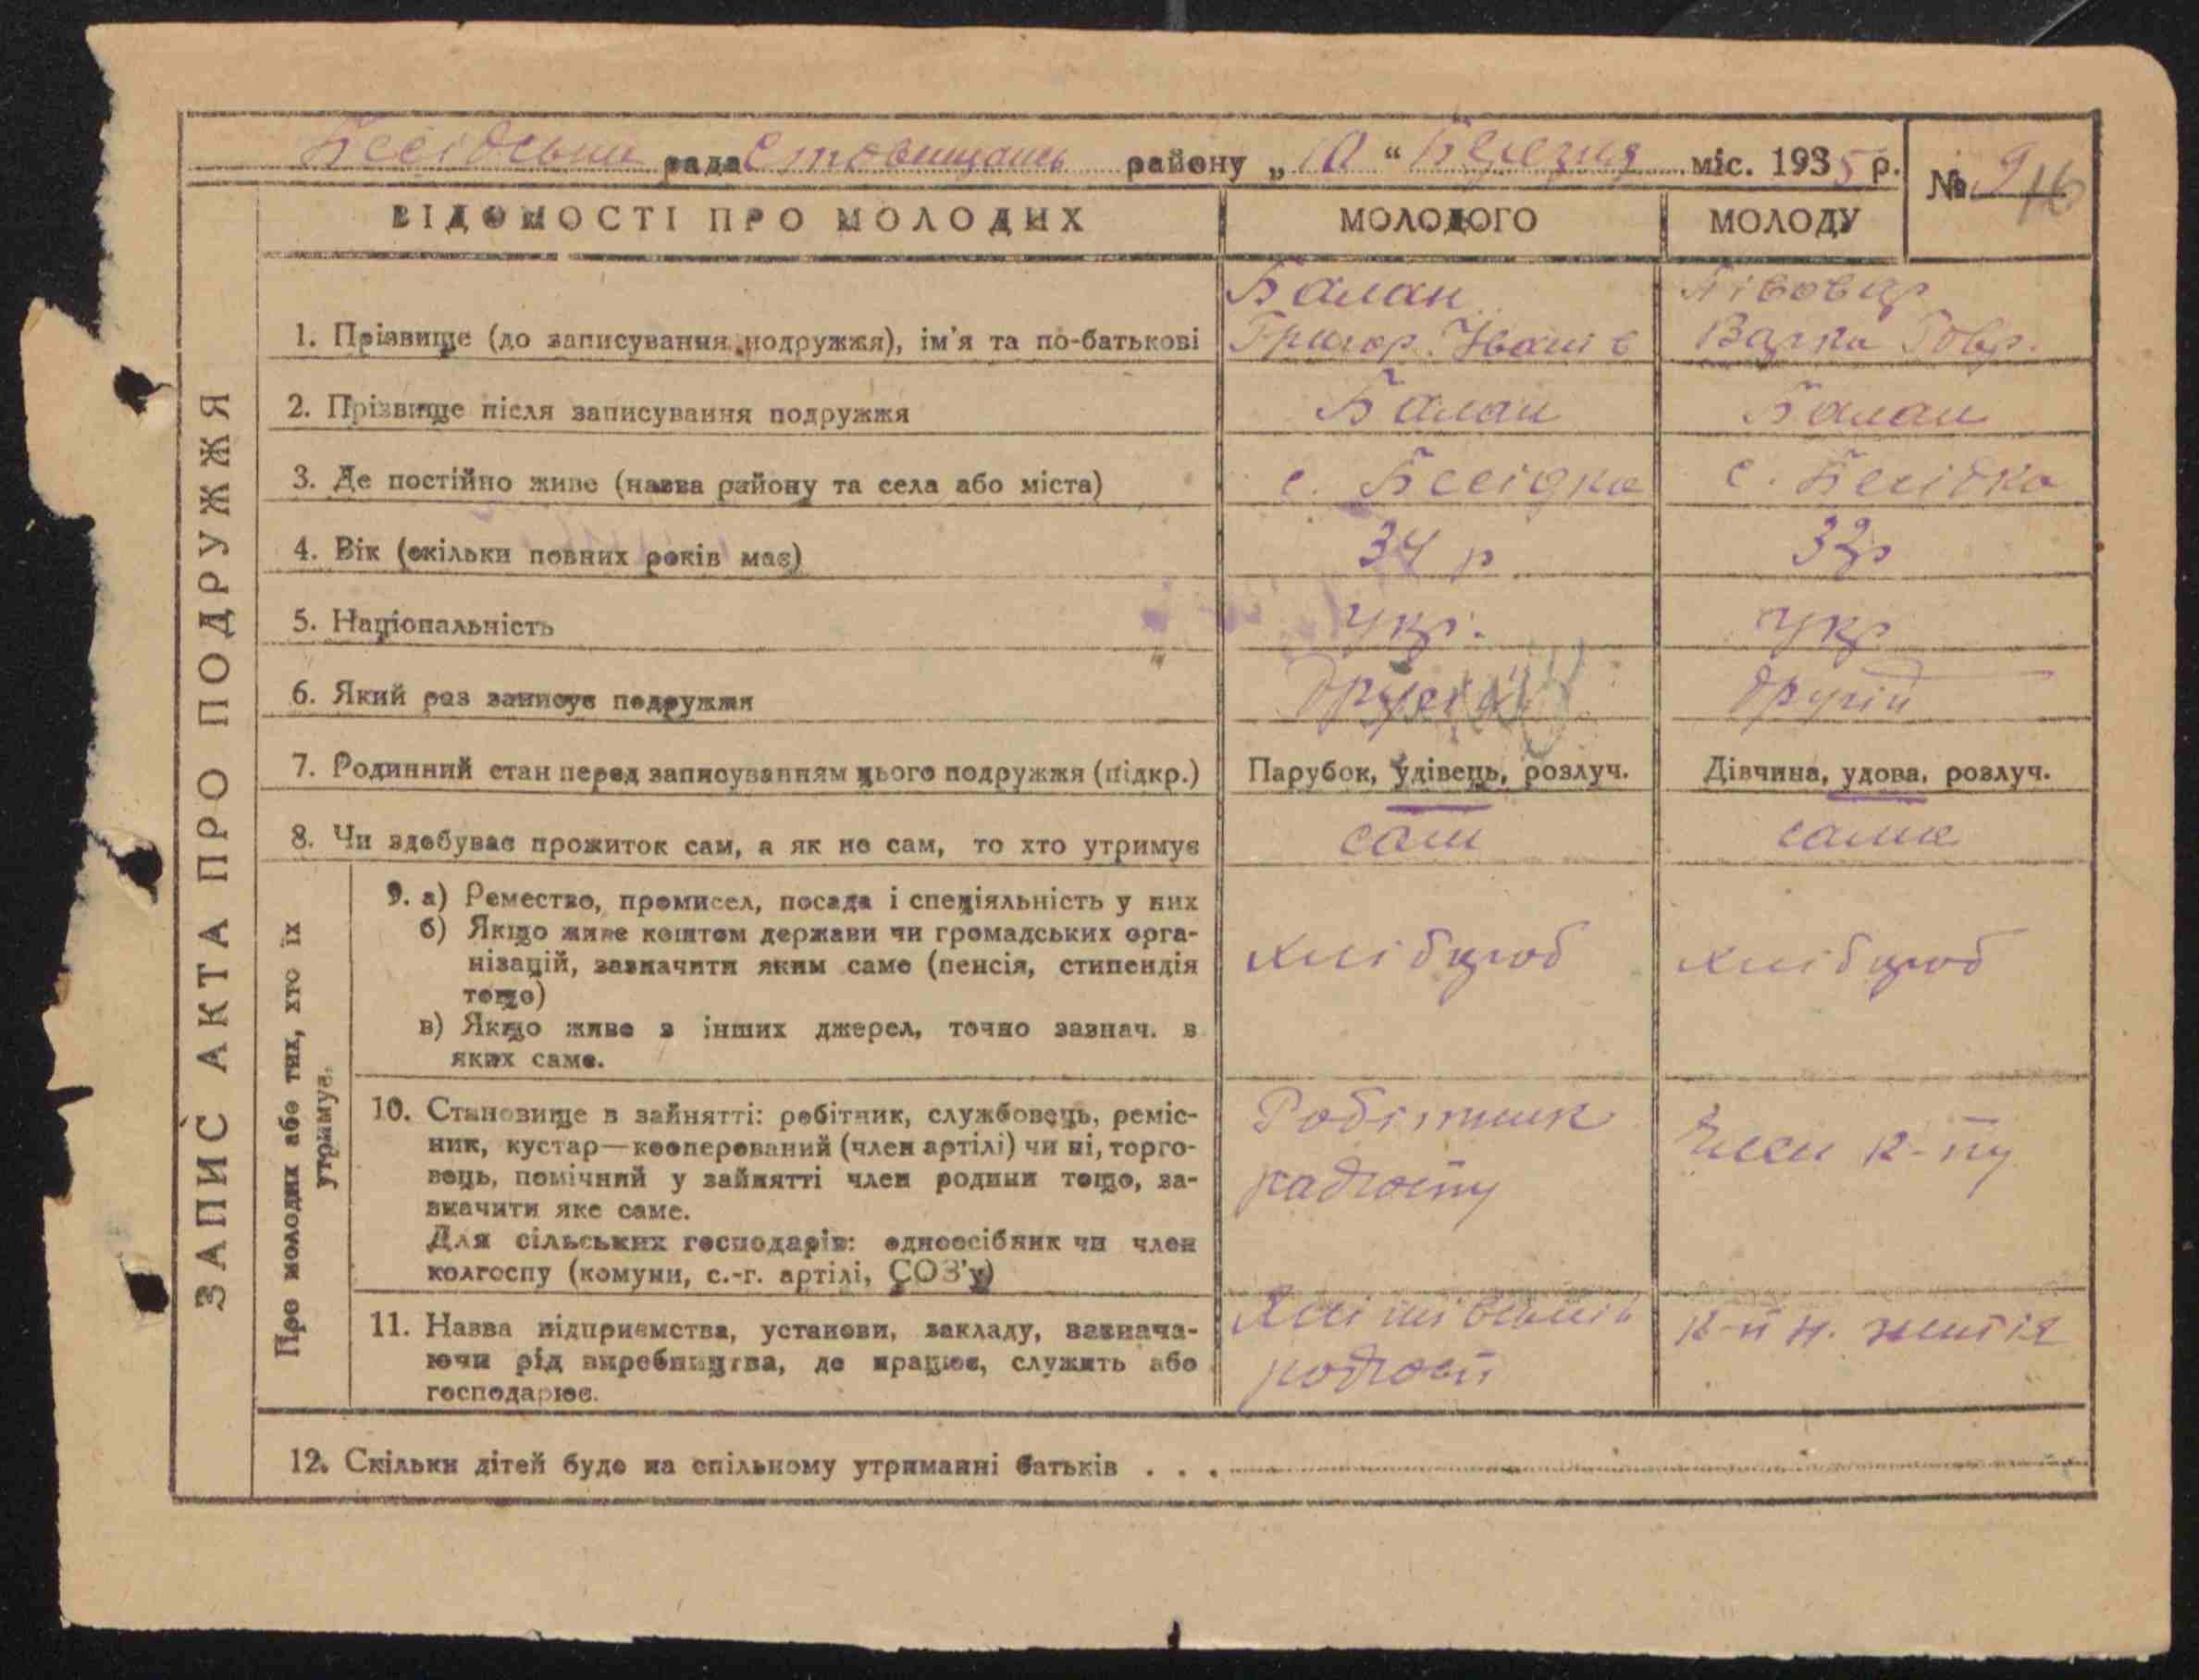 Бесідська рада Ставищан. району „ 10 “ Березня міс. 1935 р.
№ 9 16
ВІДОМОСТІ ПРО МОЛОДИХ
МОЛОДОГО
МОЛОДУ
ЗАПИС АКТА ПРО ПОДРУЖЖЯ
1. Прізвище (до записування подружжя), ім'я та по-батькові
Балан
Григор. Іванів
Півовар
Варка Говр.
2. Прізвище після записування подружжя
Балан
Балан
3. Де постійно живе (назва району та села або міста)
с. Бесідка
с. Бесідка
4. Вік (скільки повних років має)
34 р
32р
5. Національність
укр.
укр
6. Який раз записує подружжя
другий
другій
7. Родинний стан перед записуванням цього подружжя (підкр.)
Парубок, удівець, розлуч.
Дівчина, удова, розлуч.
8. Чи здобуває прожиток сам, а як не сам, то хто утримує
сам
сама
Про молодих або тих, хто їх
утримує.
9. а) Ремество, промисел, посада і спеціяльність у них
б) Якщо живе коштом держави чи громадських орга-
нізацій, зазначити яким саме (пенсія, стипендія
тощо)
в) Якщо живе з інших джерел, точно зазнач. з
яких саме.
хлібороб
хлібороб
10. Становище в зайнятті: робітник, службовець, реміс-
ник, кустар—кооперований (член артілі) чи ні, торго-
вець, помічний у зайнятті член родини тощо, за-
значити яке саме.
Для сільських господарів: одноосібник чи член
колгоспу (комуни, с.-г. артілі, СОЗ'у)
Робітник
радгоспу
Член к-пу
11. Назва підприємства, установи, закладу, зазнача-
ючи рід виробництва, де працює, служить або
господарює.
радгосп
к-п н. життя
12. Скільки дітей буде на спільному утриманні батьків . . .